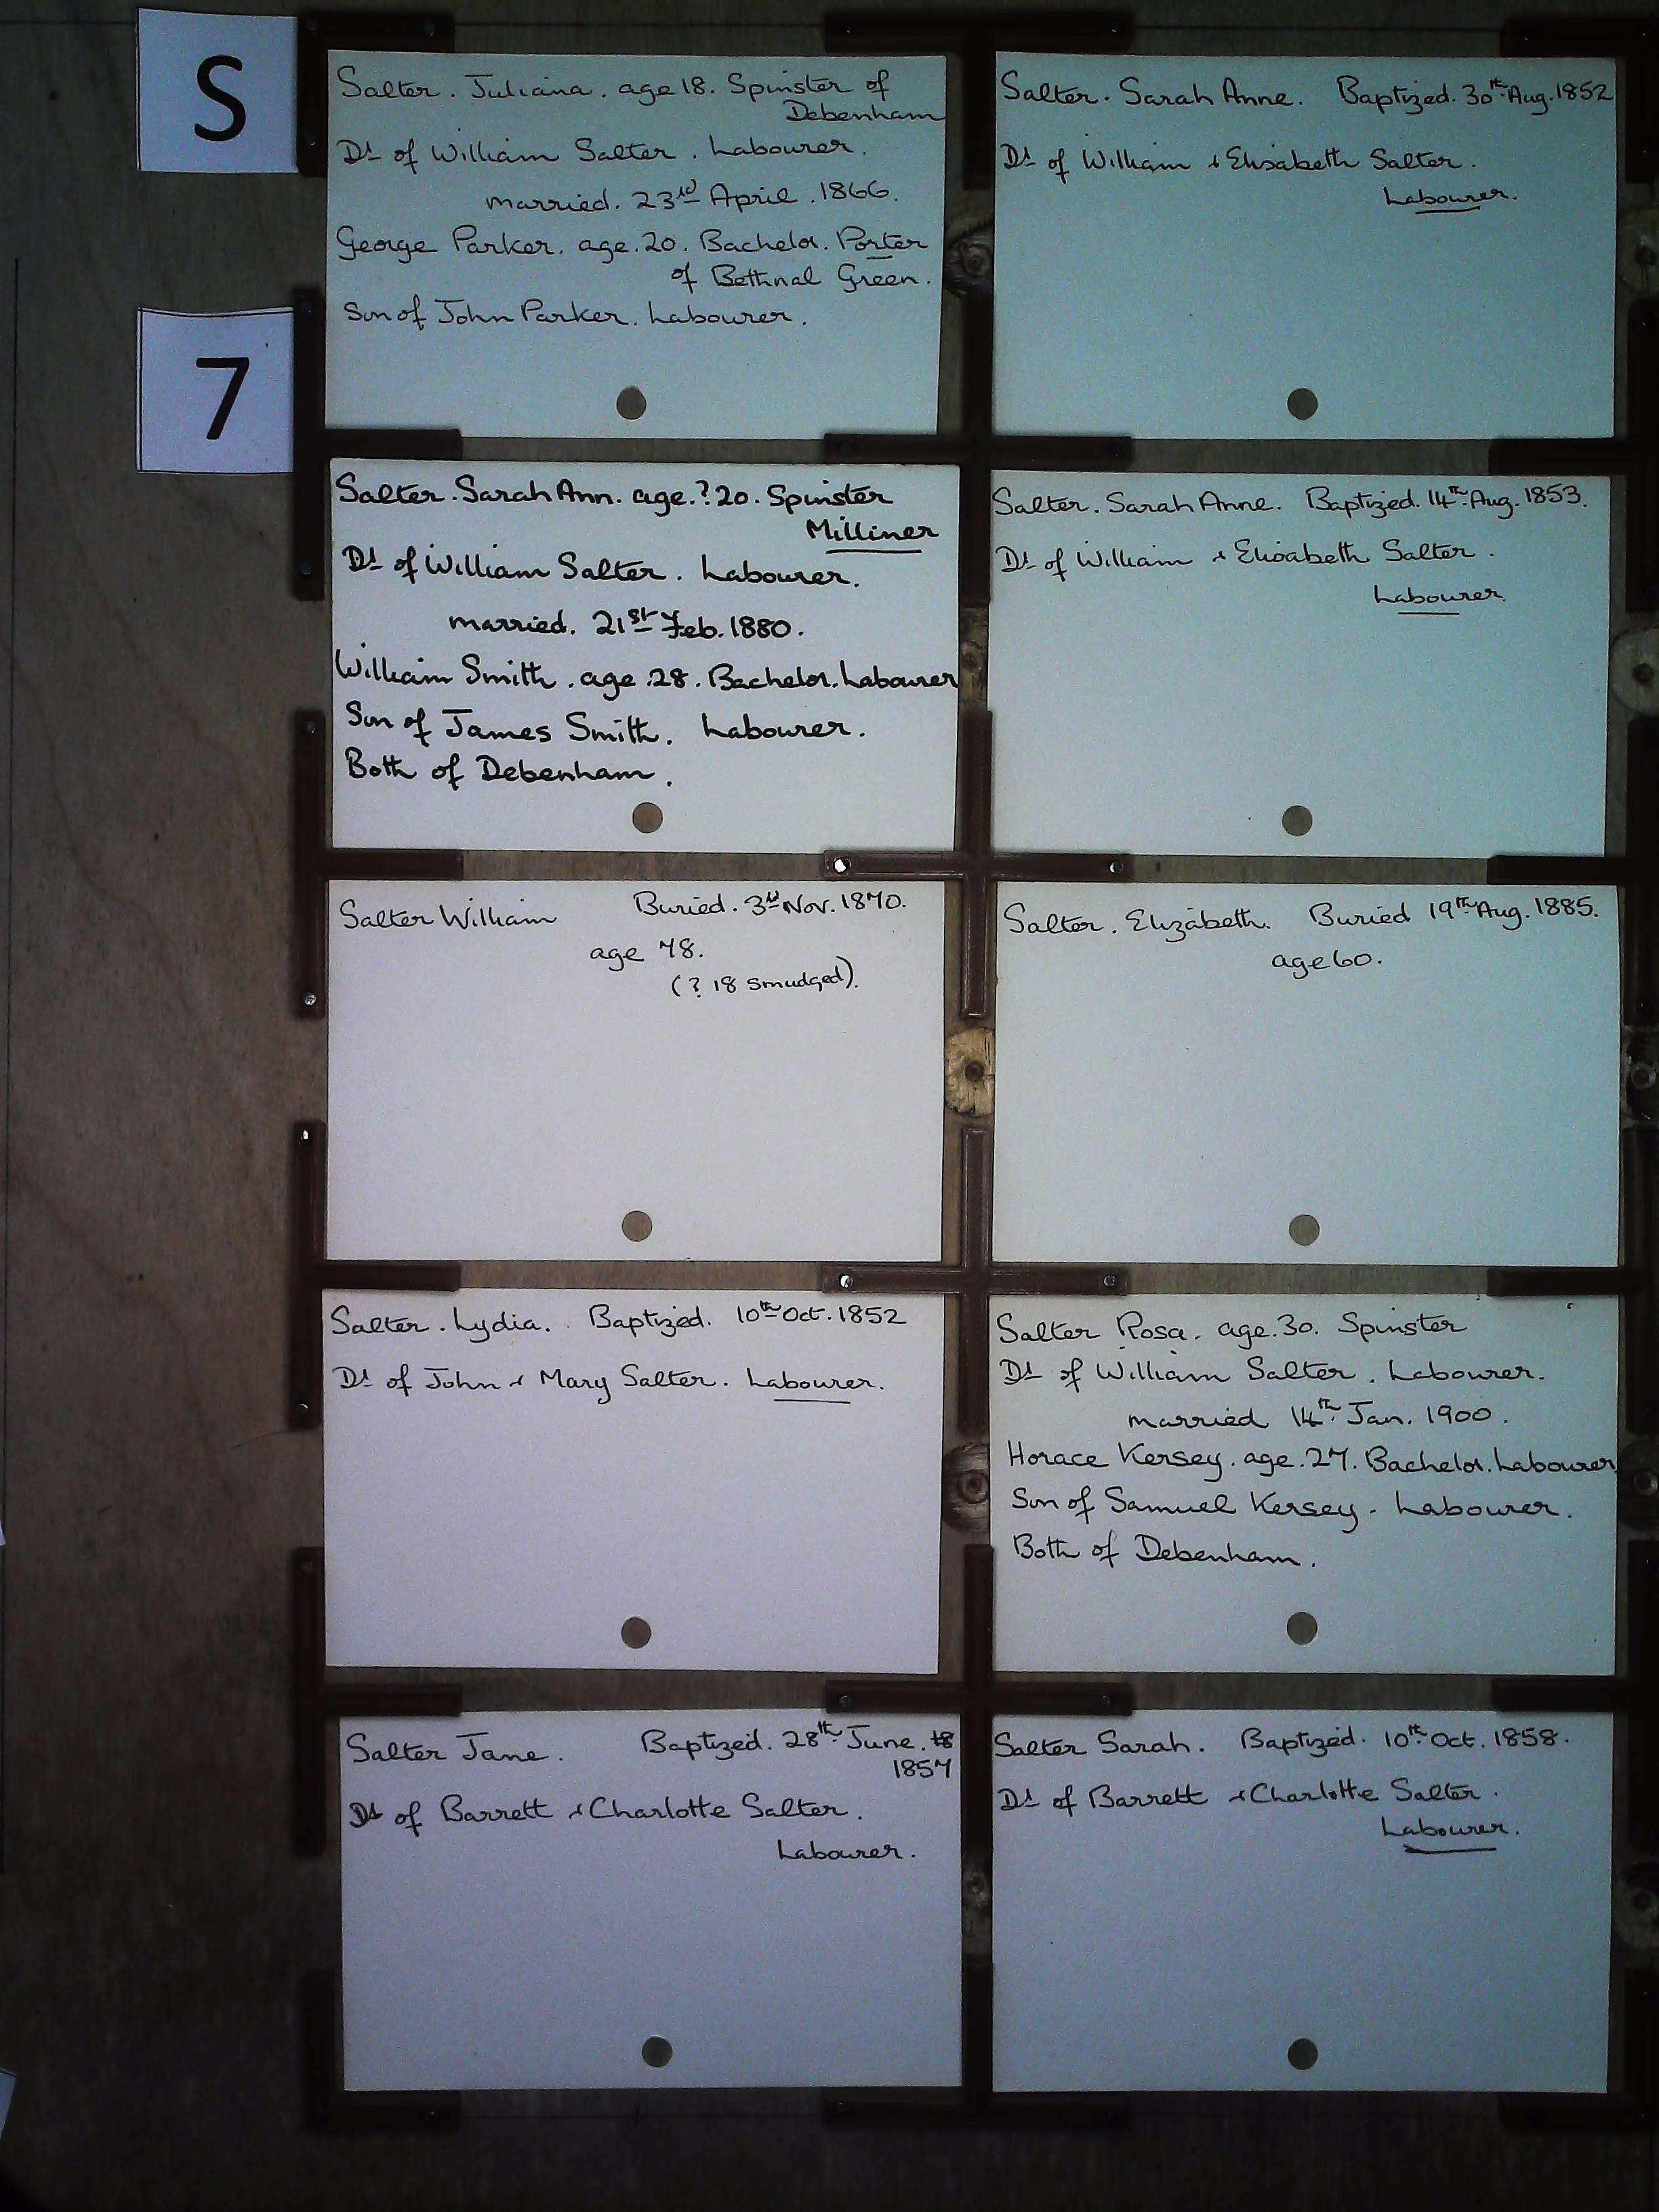 S
7
Salter. Juliana. age 18. Spinster of
Debenham
Dt of William Salter. Labourer.
married. 23rd April. 1866.
George Parker. age. 20. Bachelor. Porter
of Bethnal Green.
Son of John Parker. Labourer.
Salter. Sarah Anne. Baptized. 30th Aug. 1852
Dt of William & Elisabeth Salter.
Labourer.
Salter. Sarah Ann. age. ? 20. Spinster
Milliner
Dt of William Salter. Labourer.
married. 21st Feb. 1880.
William Smith. age. 28. Bachelor. Labourer
Son of James Smith. Labourer.
Both of Debenham.
Salter. Sarah Anne. Baptized. 14th Aug. 1853.
Dt of William & Elisabeth Salter.
Labourer.
Salter William Buried. 3rd Nov. 1870.
age 78.
(? 18 smudged).
Salter. Elizabeth. Buried 19th Aug. 1885.
age 60.
Salter. Lydia. Baptized. 10th Oct. 1852
Dt of John & Mary Salter. Labourer.
Salter Rosa. age. 30. Spinster
Dt of William Salter. Labourer.
married 14th Jan. 1900.
Horace Kersey. age. 27. Bachelor. Labourer
Son of Samuel Kersey. Labourer.
Both of Debenham.
Salter Jane. Baptized. 28th June. 18
1857
Dt of Barrett & Charlotte Salter.
Labourer.
Salter Sarah. Baptized. 10th Oct. 1858.
Dt of Barrett & Charlotte Salter.
Labourer.